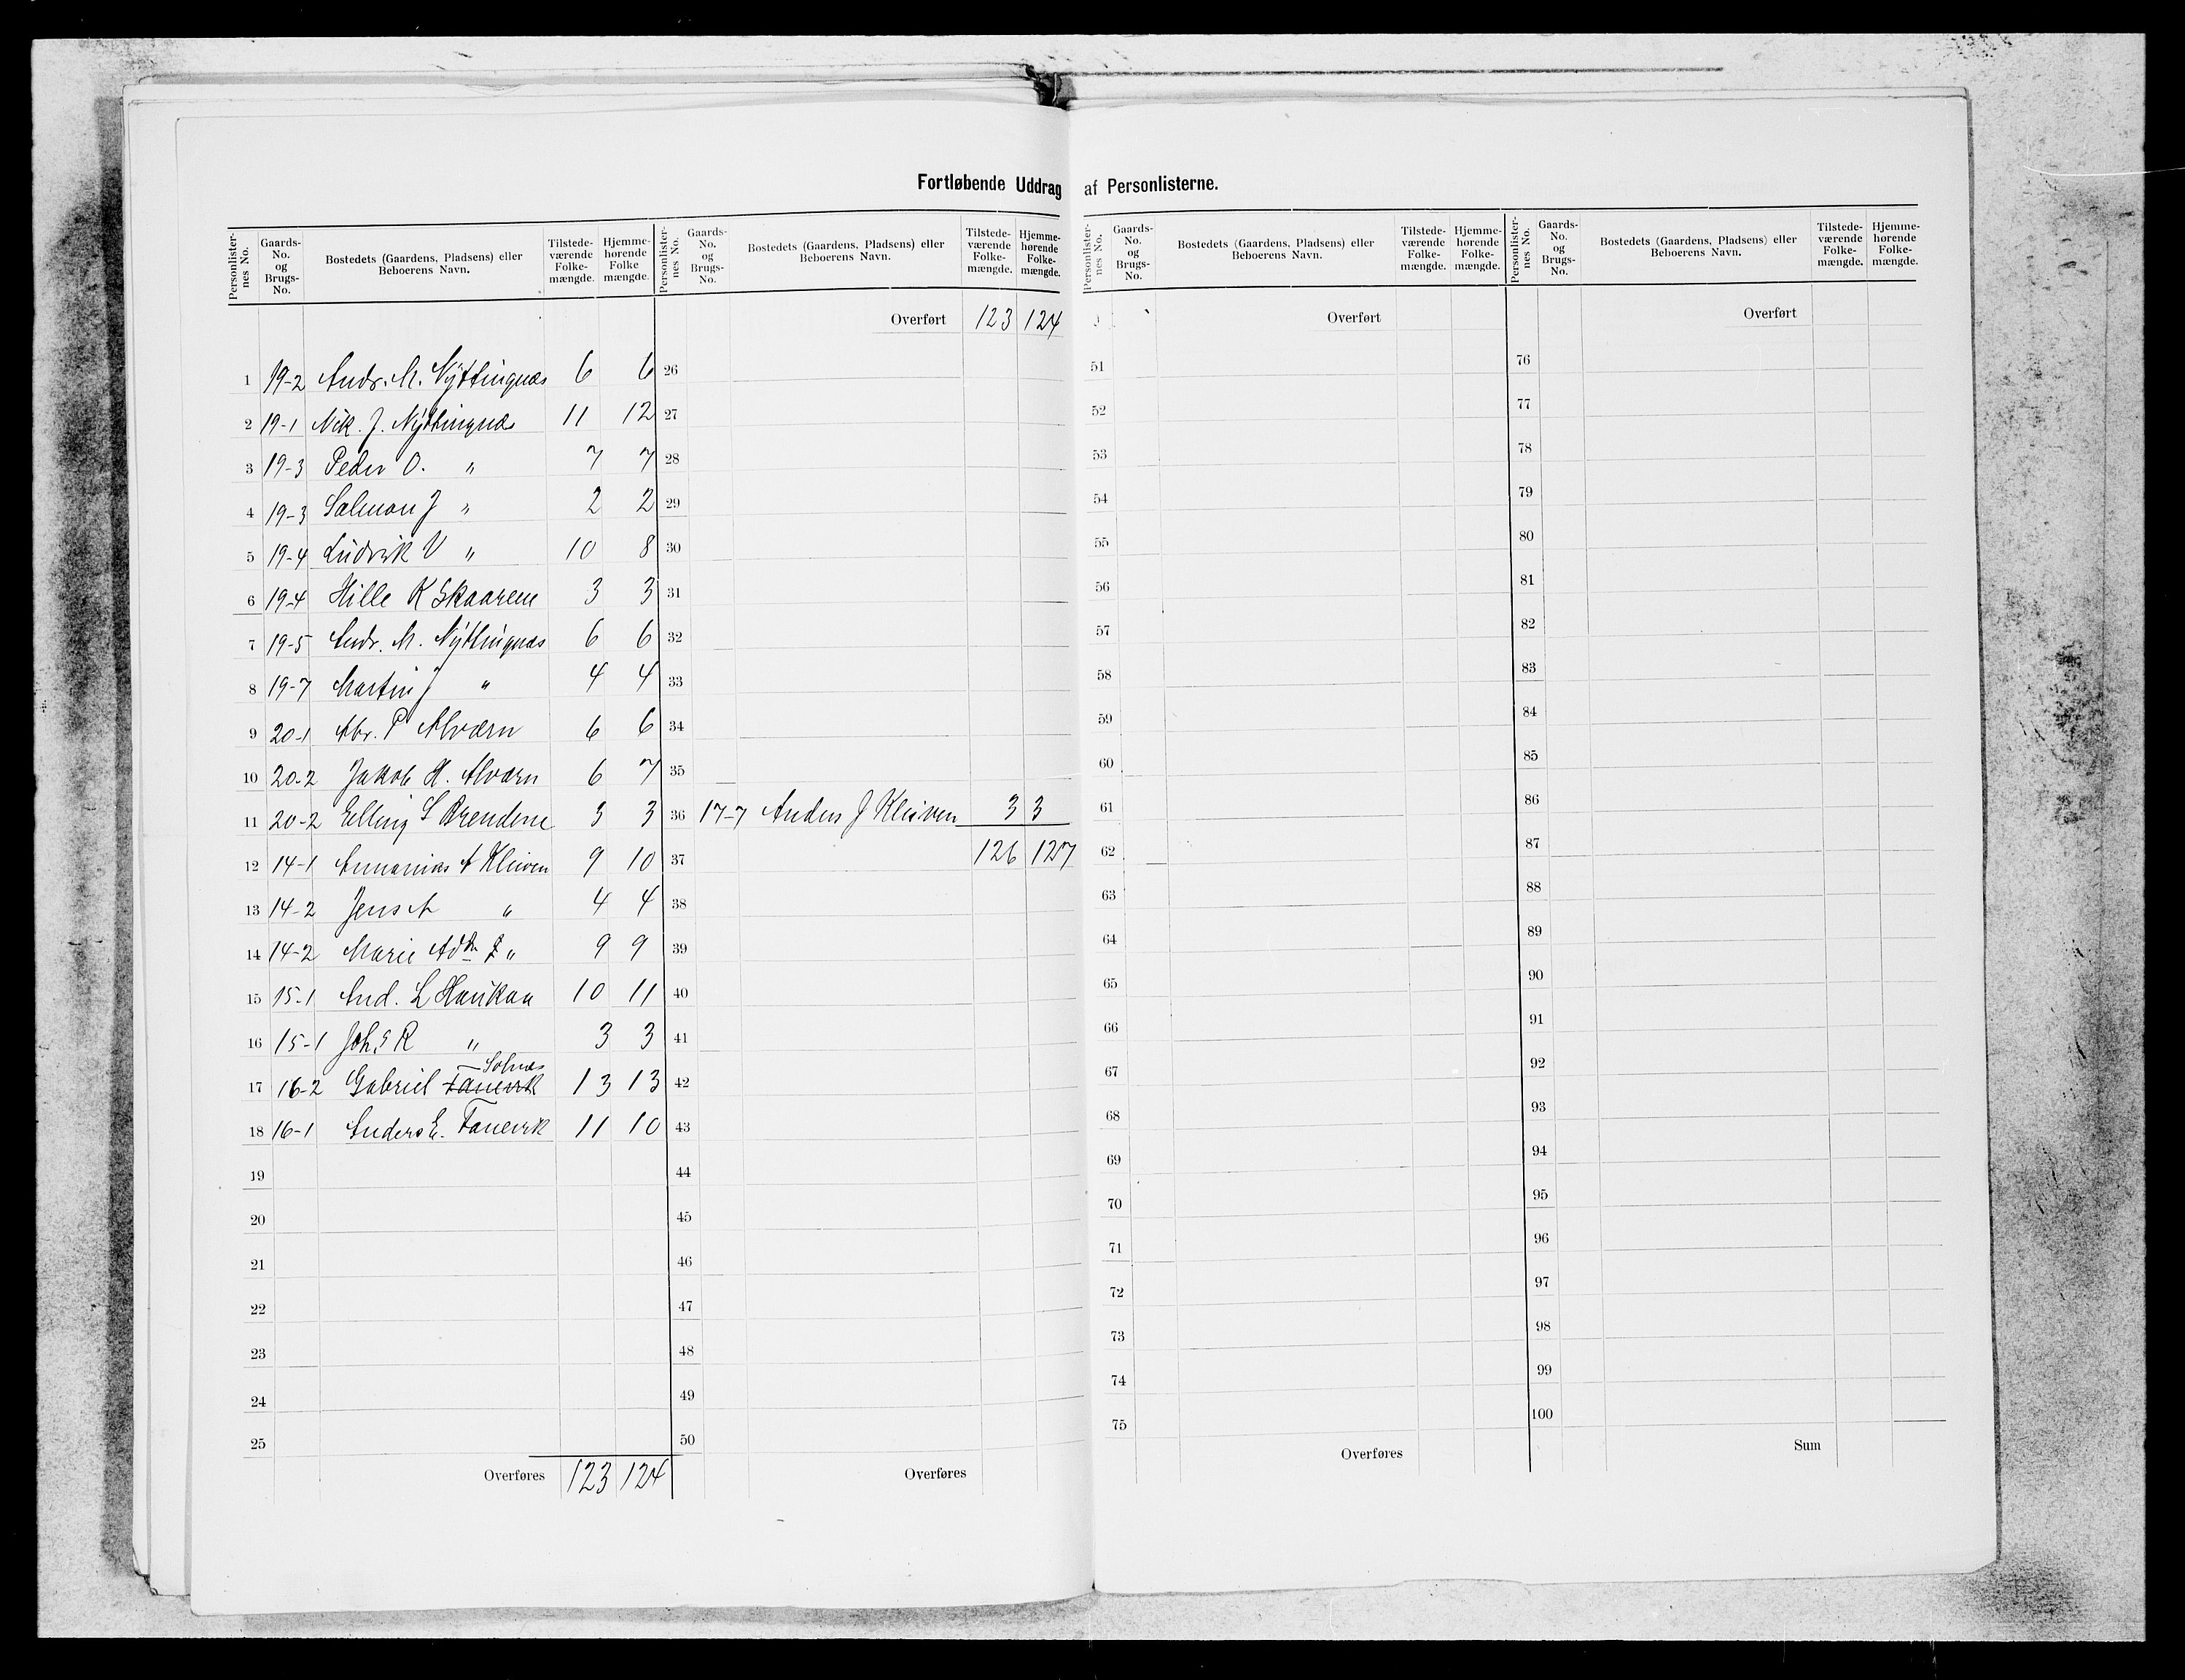 Fortløbende Uddrag af Personlisterne.
Personlister-nes No. | Gaards-No. og Brugs-No. | Bostedets (Gaardens, Pladsens) eller Beboerens Navn. | Tilstede-værende Folke-mængde. | Hjemme-hørende Folke mængde.
1 19-2 Andr. M. Nyttingnæs 6 6
2 19-1 Nik. J. Nyttingnæs 11 12
3 19-3 Peder O. " 7 7
4 19-3 Salmon J " 2 2
5 19-4 Ludvik V " 10 8
6 19-4 Hille K Skaarene 3 3
7 19-5 Andr. M. Nyttingnæs 6 6
8 19-7 Martin J " 4 4
9 20-1 Abr. P Alværn 6 6
10 20-2 Jakob H. Alværn 6 7
11 20-2 Elling S Brendene 3 3
12 14-1 Annanias A Kleiven 9 10
13 14-2 Jens A " 4 4
14 14-2 Marie Adr. "  9 9
15 15-1 And. L Haukaa 10 11
16 15-1 Johs R " 3 3
Solnæs
17 16-2 Gabriel Fanevik 13 13
18 16-1 Anders E. Fanevik 11 10
19
20
21
22
23
24
25
Overføres 123 124
Personlister-nes No. | Gaards-No. og Brugs-No. | Bostedets (Gaardens, Pladsens) eller Beboerens Navn. | Tilstede-værende Folke-mængde. | Hjemme-hørende Folke-mængde.
Overført 123 124
26
27
28
29
30
31
32
33
34
35
36 17-7 Anders J Kleiven 3 3
37 126 127
38
39
40
41
42
43
44
45
46
47
48
49
50
Overføres
Personlister-nes No. | Gaards-No. og Brugs-No. | Bostedets (Gaardens, Pladsens) eller Beboerens Navn. | Tilstede-værende Folke-mængde. | Hjemme-hørende Folke-mængde.
Overført
51
52
53
54
55
56
57
58
59
60
61
62
63
64
65
66
67
68
69
70
71
72
73
74
75
Overføres
Personlister-nes No. | Gaards-No. og Brugs-No. | Bostedets (Gaardens, Pladsens) eller Beboerens Navn. | Tilstede-værende Folke-mængde. | Hjemme-hørende Folke-mængde.
Overført
76
77
78
79
80
81
82
83
84
85
86
87
88
89
90
91
92
93
94
95
96
97
98
99
100
Sum